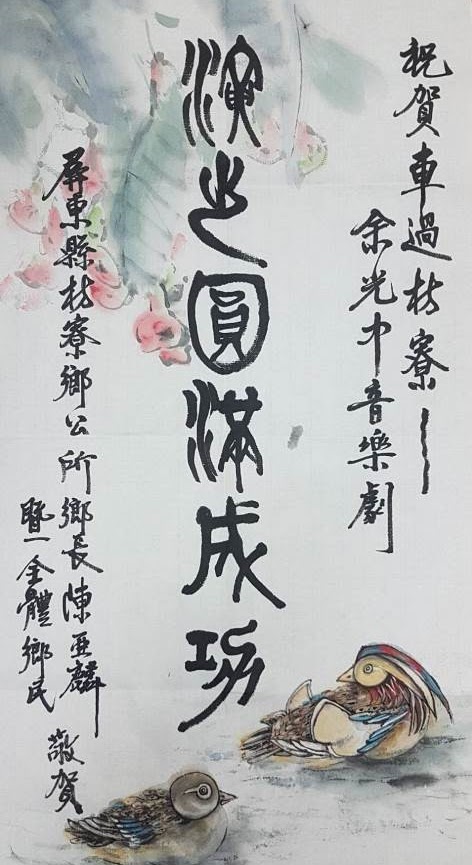 祝賀車過枋寮——
余光中音樂劇
演出圓滿成功
屏東縣枋寮鄉公所鄉長陳亞麟
暨全體鄉民
敬賀